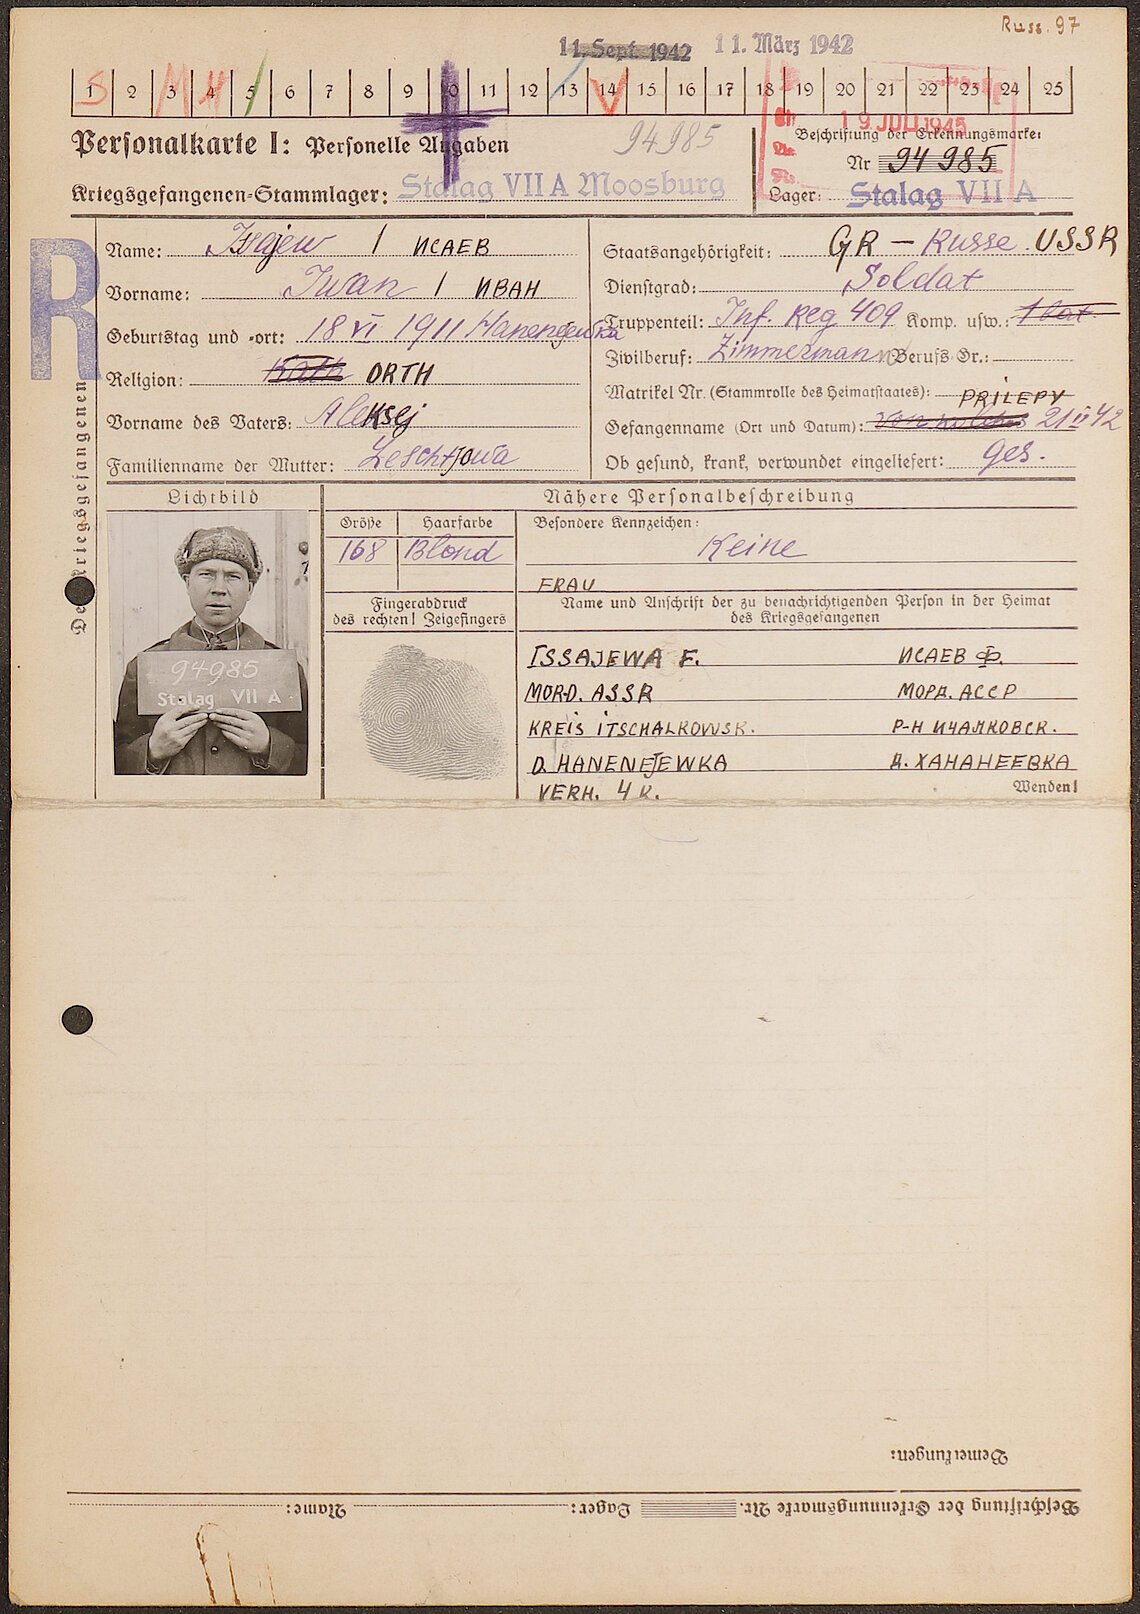 Russ. 97
11. Sept. 1942 11. März 1942
1 2 3 4 5 6 7 8 9 10 11 12 13 14 15 16 17 18 19 20 21 22 23 24 25
S M H V
19. JULI 1945
Personalkarte I: Personelle Angaben
94985
Beschriftung der Erkennungsmarke:
Nr 94985
Kriegsgefangenen-Stammlager: Stalag VII A Moosburg
Lager: Stalag VII A
R
Name: Isajew / ИСАЕВ
Vorname: Iwan / ИВАН
Geburtstag und -ort: 18 VI 1911 Hanenejewka
Religion: Kath ORTH
Vorname des Vaters: Aleksej
Familienname der Mutter: Leschtjowa
Staatsangehörigkeit: GR – Russe. USSR
Dienstgrad: Soldat
Truppenteil: Inf. Reg 409 Komp. usw.: 1 bat.
Zivilberuf: Zimmermann Berufs Gr.:
Matrikel Nr. (Stammrolle des Heimatstaates):
PRILEPY
Gefangenname (Ort und Datum): 21 II 42
Ob gesund, krank, verwundet eingeliefert: ges.
Lichtbild
94985
Stalag VII A
Nähere Personalbeschreibung
Größe Haarfarbe Besondere Kennzeichen:
168 Blond Keine
FRAU
Fingerabdruck
des rechten! Zeigefingers
Name und Anschrift der zu benachrichtigenden Person in der Heimat
des Kriegsgefangenen
ISSAJEWA F. ИСАЕВ Ф.
MORD. ASSR МОРД. АССР
KREIS ITSCHALKOWSK. Р-Н ИЧАЛКОВСК.
D. HANENEJEWKA Д. ХАНАНЕЕВКА
VERH. 4 K.
Wenden!
Bemerkungen:
Beschriftung der Erkennungsmarke Nr. Lager: Name: